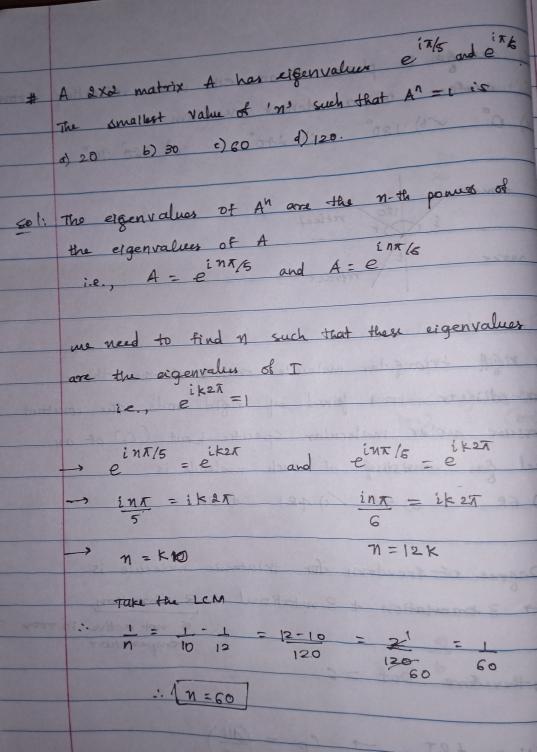 # A 2x2 matrix A has eigenvalues e^{iπ/5} and e^{iπ/6}.
The smallest value of 'n' such that A^n = I is
a) 20 b) 30 c) 60 d) 120.
Sol: The eigenvalues of A^n are the n-th powers of
the eigenvalues of A
i.e., A = e^{inπ/5} and A = e^{inπ/6}
we need to find n such that these eigenvalues
are the eigenvalues of I
i.e., e^{ik2π} = 1
→ e^{inπ/5} = e^{ik2π} and e^{inπ/6} = e^{ik2π}
→ inπ/5 = ik2π inπ/6 = ik2π
→ n = k10 n = 12k
Take the LCM
∴ 1/n = 1/10 - 1/12 = 12-10/120 = 2/120 1/60 = 1/60
∴ n = 60